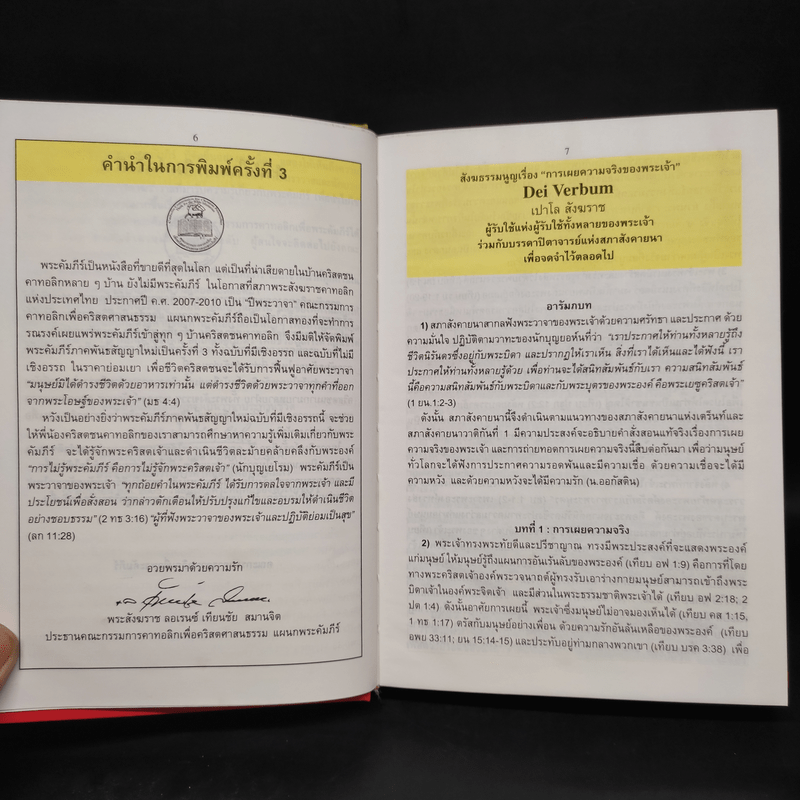 6
คำนำในการพิมพ์ครั้งที่ 3
พระคัมภีร์เป็นหนังสือที่ขายดีที่สุดในโลก แต่เป็นที่น่าเสียดายในบ้านคริสตชน
คาทอลิกหลาย ๆ บ้าน ยังไม่มีพระคัมภีร์ ในโอกาสที่สภาพระสังฆราชคาทอลิก
แห่งประเทศไทย ประกาศปี ค.ศ. 2007-2010 เป็น "ปีพระวาจา" คณะกรรมการ
คาทอลิกเพื่อคริสตศาสนธรรม แผนกพระคัมภีร์ถือเป็นโอกาสทองที่จะทำการ
รณรงค์เผยแพร่พระคัมภีร์เข้าสู่ทุก ๆ บ้านคริสตชนคาทอลิก จึงมีมติให้จัดพิมพ์
พระคัมภีร์ภาคพันธสัญญาใหม่เป็นครั้งที่ 3 ทั้งฉบับที่มีเชิงอรรถ และฉบับที่ไม่มี
เชิงอรรถ ในราคาย่อมเยา เพื่อช่วยให้ชีวิตคริสตชนจะได้รับการฟื้นฟูอาศัยพระวาจา
"มนุษย์มิได้ดำรงชีวิตด้วยอาหารเท่านั้น แต่ดำรงชีวิตด้วยพระวาจาทุกคำที่ออก
จากพระโอษฐ์ของพระเจ้า" (มธ 4:4)
หวังเป็นอย่างยิ่งว่าพระคัมภีร์ภาคพันธสัญญาใหม่ฉบับที่มีเชิงอรรถนี้ จะช่วย
ให้พี่น้องคริสตชนคาทอลิกของเราสามารถศึกษาหาความรู้เพิ่มเติมเกี่ยวกับพระ
คัมภีร์ จะได้รู้จักพระคริสตเจ้าและดำเนินชีวิตละม้ายคล้ายคลึงกับพระองค์
"การไม่รู้พระคัมภีร์ คือการไม่รู้จักพระคริสตเจ้า" (นักบุญเยโรม) พระคัมภีร์เป็น
พระวาจาของพระเจ้า "ทุกถ้อยคำในพระคัมภีร์ ได้รับการดลใจจากพระเจ้า และมี
ประโยชน์เพื่อสั่งสอน ว่ากล่าวตักเตือนให้ปรับปรุงแก้ไขและอบรมให้ดำเนินชีวิต
อย่างชอบธรรม" (2 ทธ 3:16) "ผู้ที่ฟังพระวาจาของพระเจ้าและปฏิบัติย่อมเป็นสุข"
(ลก 11:28)
อวยพรมาด้วยความรัก
พระสังฆราช ลอเรนซ์ เทียนชัย สมานจิต
ประธานคณะกรรมการคาทอลิกเพื่อคริสตศาสนธรรม แผนกพระคัมภีร์
7
สังฆธรรมนูญเรื่อง "การเผยความจริงของพระเจ้า"
Dei Verbum
เปาโล สังฆราช
ผู้รับใช้แห่งผู้รับใช้ทั้งหลายของพระเจ้า
ร่วมกับบรรดาปิตาจารย์แห่งสภาสังคายนา
เพื่อจดจำไว้ตลอดไป
อารัมภบท
1) สภาสังคายนาสากลฟังพระวาจาของพระเจ้าด้วยความศรัทธา และประกาศ ด้วย
ความมั่นใจ ปฏิบัติตามวาทะของนักบุญยอห์นที่ว่า "เราประกาศให้ท่านทั้งหลายรู้ถึง
ชีวิตนิรันดรซึ่งอยู่กับพระบิดา และปรากฏให้เราเห็น สิ่งที่เราได้เห็นและได้ฟังนี้ เรา
ประกาศให้ท่านทั้งหลายรู้ด้วย เพื่อท่านจะได้สนิทสัมพันธ์กับเรา ความสนิทสัมพันธ์
นี้คือความสนิทสัมพันธ์กับพระบิดาและกับพระบุตรของพระองค์ คือพระเยซูคริสตเจ้า"
(1 ยน.1:2-3)
ดังนั้น สภาสังคายนานี้จึงดำเนินตามแนวทางของสภาสังคายนาแห่งเตร็นท์และ
สภาสังคายนาวาติกันที่ 1 มีความประสงค์จะอธิบายคำสั่งสอนแท้จริงเรื่องการเผย
ความจริงของพระเจ้า และการถ่ายทอดการเผยความจริงนี้สืบต่อกันมา เพื่อว่ามนุษย์
ทั่วโลกจะได้ฟังการประกาศความรอดพ้นและมีความเชื่อ ด้วยความเชื่อจะได้มี
ความหวัง และด้วยความหวังจะได้มีความรัก (น.ออกัสติน)
บทที่ 1 : การเผยความจริง
2) พระเจ้าทรงพระทัยดีและปรีชาญาณ ทรงมีพระประสงค์ที่จะแสดงพระองค์
แก่มนุษย์ ให้มนุษย์รู้ถึงแผนการอันเร้นลับของพระองค์ (เทียบ อฟ 1:9) คือการที่โดย
ทางพระคริสตเจ้าองค์พระวจนาถต์ผู้ทรงรับเอาร่างกายมนุษย์สามารถเข้าถึงพระ
บิดาเจ้าในองค์พระจิตเจ้า และมีส่วนในพระธรรมชาติพระเจ้าได้ (เทียบ อฟ 2:18; 2
ปต 1:4) ดังนั้นอาศัยการเผยนี้ พระเจ้าซึ่งมนุษย์ไม่อาจมองเห็นได้ (เทียบ คส 1:15,
1 ทธ 1:17) ตรัสกับมนุษย์อย่างเพื่อน ด้วยความรักอันล้นเหลือของพระองค์ (เทียบ
อพย 33:11; ยน 15:14-15) และประทับอยู่ท่ามกลางพวกเขา (เทียบ บรค 3:38) เพื่อ